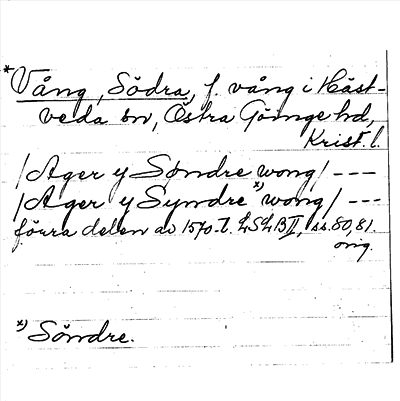 *Vång, Södra, f. vång i Häst-
veda sn, Östra Göinge hd,
Krist. l.
/Ager y Søndre wong/ ---
/Ager y Syndre *) wong/ ---
förra delen av 1570-t. LSLB II, ss. 80, 81.
orig.
*) Söndre.